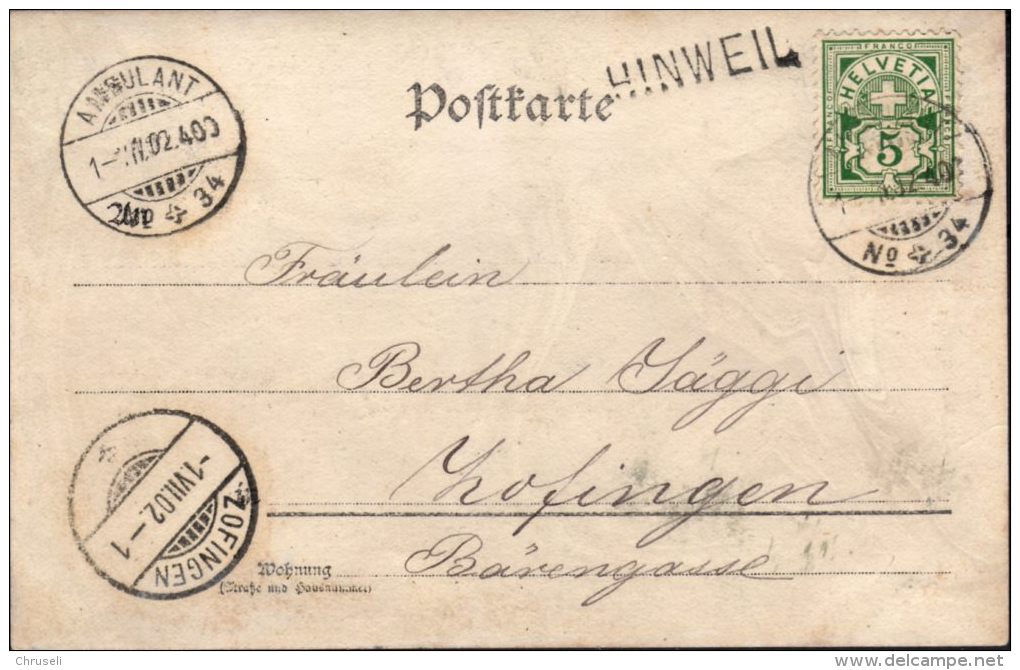 HINWEIL
FRANCO
HELVETIA
5
AMBULANT
1-1.VII.02.400
No 34
Postkarte
No 34
Fräulein
Bertha Jäggi
Zofingen
-1.VII.02.-1
ZOFINGEN
Wohnung
(Straße und Hausnummer)
Bärengasse
Chruseli
delcampe.net